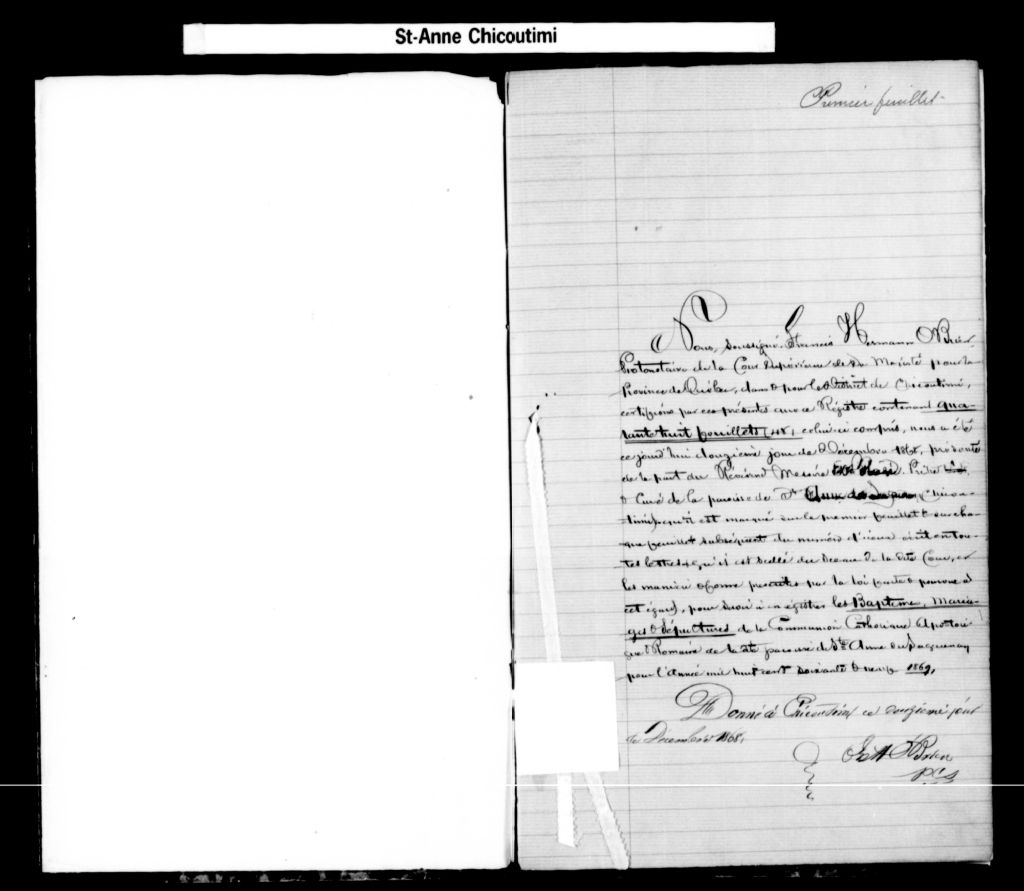 St-Anne Chicoutimi
Premier feuillet
Nous, soussigné, Francis Hermann O'Brien
Protonotaire de la Cour Supérieure de Sa Majesté pour la
Province de Québec, dans & pour le District de Chicoutimi,
certifions par ces présentes que ce Régistre contenant qua-
rante huit feuillets (48, celui-ci compris, nous a été
ce jourd'hui douzième jour de Décembre 1868, présenté
de la part du Révérend Messire Prêtre
& Curé de la paroisse de Ste Chicou-
timi, qu'il est marqué sur le premier feuillet & sur cha-
que feuillet subséquent du numéro d'iceux écrit en tou-
tes lettres & qu'il est scellé du Sceau de la dite Cour, en
les manière & forme prescrites par la loi faite & pourvue à
cet égard, pour servir à enregistrer les Baptême, Maria-
ges & Sépultures de la Communion Catholique Apostoli-
que & Romaine de la dte paroisse de Ste Anne du Saguenay
pour l'Année mil huit cent soixante & neuf 1869,
Donné à Chicoutimi ce douzième jour
de Décembre 1868,
O'Brien
P.C.S